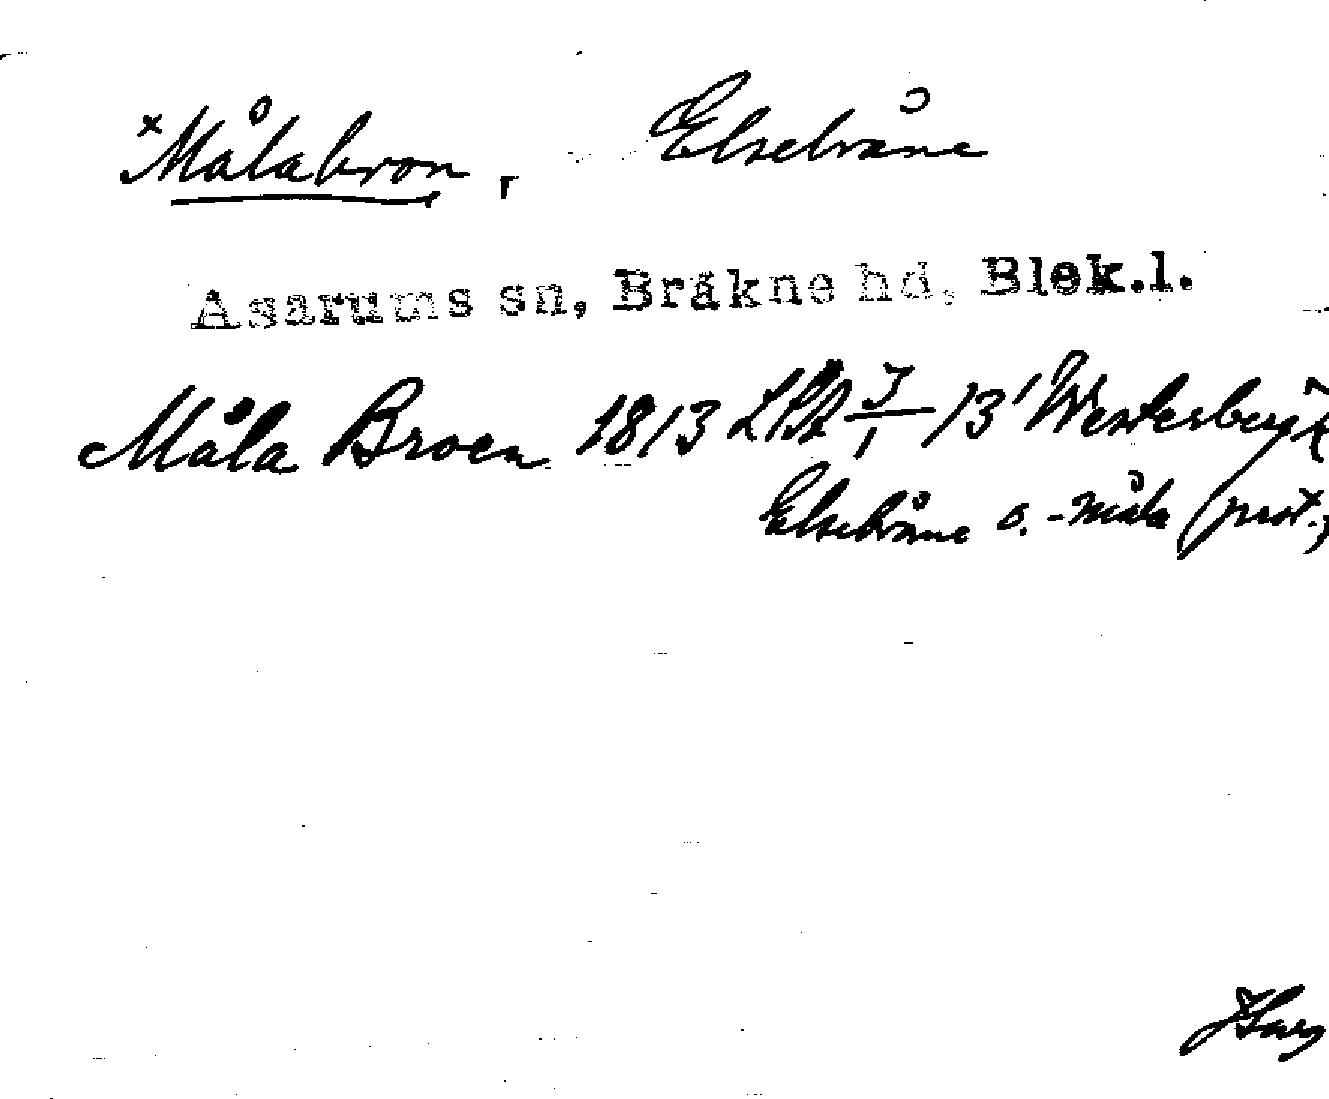 ×Målabron, Elsebråne
Asarums sn, Bräkne hd, Blek.l.
Måla Broen 1813 13' Westerberg
Elsebråne o. -måla (prot.)